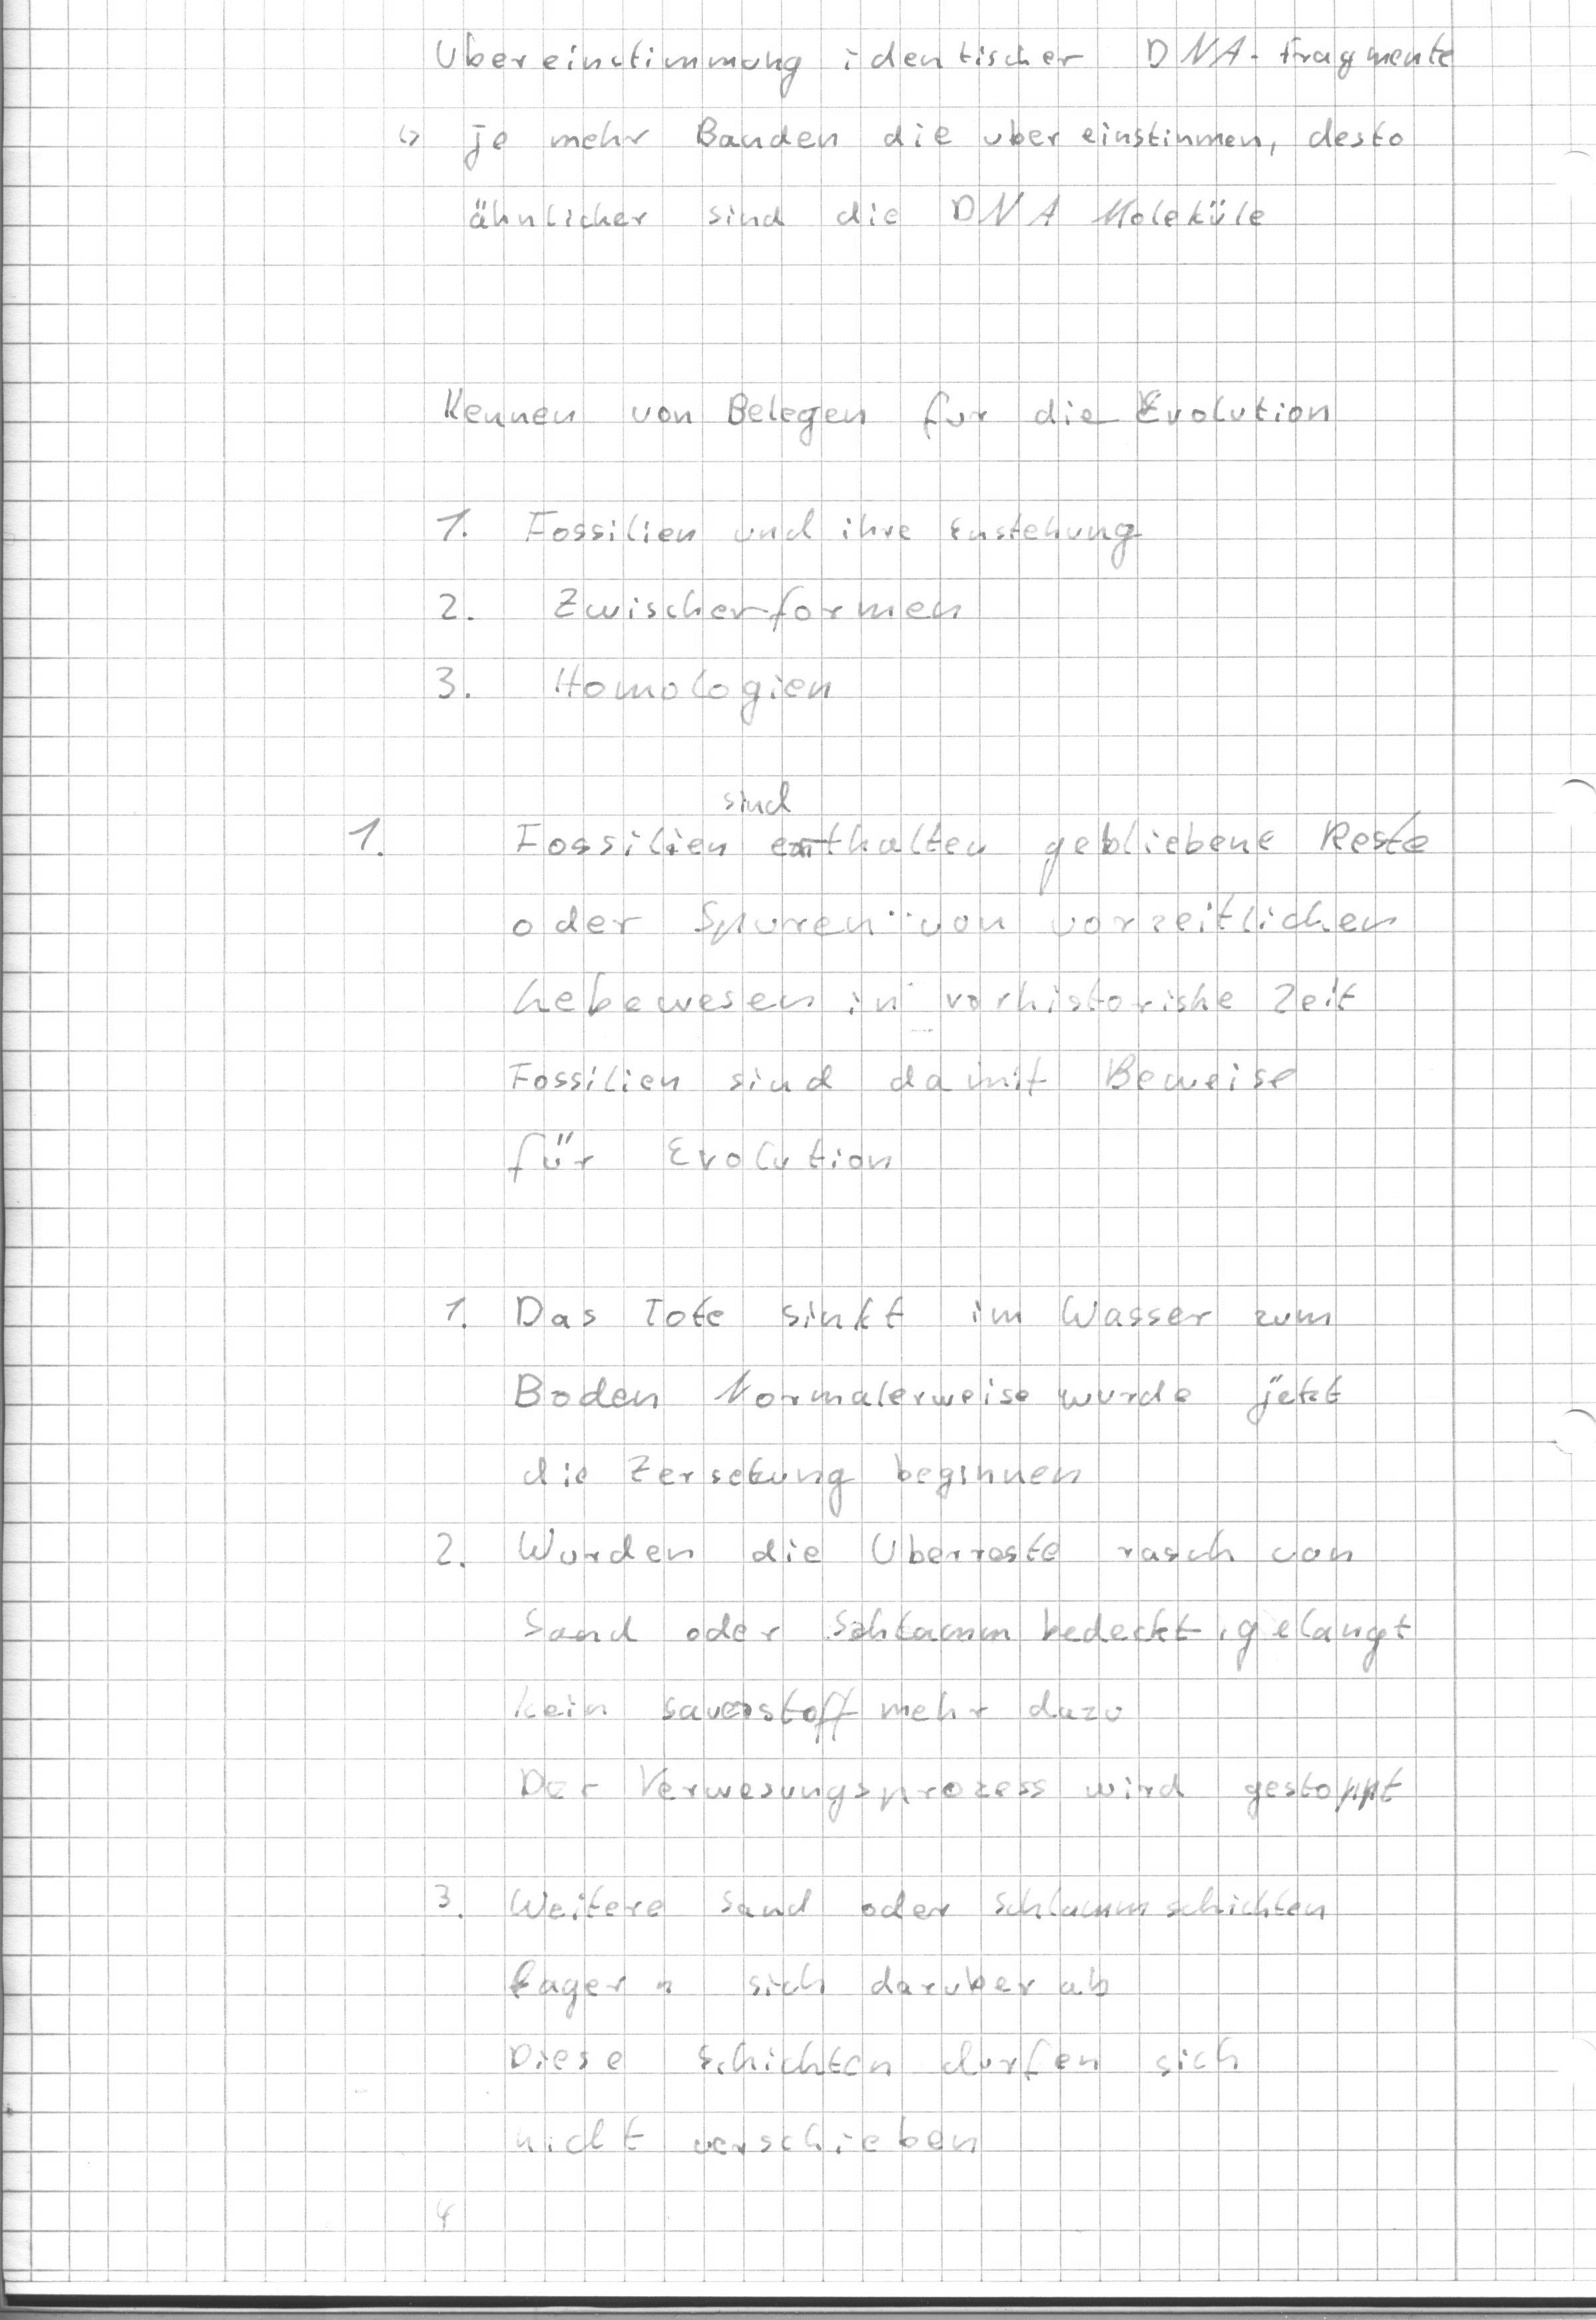 Ubereinstimmung identischer DNA-Fragmente
↳ je mehr Banden die uber einstimmen, desto
ähnlicher sind die DNA Moleküle
Kennen von Belegen fur die Evolution
1. Fossilien und ihre Enstehung
2. Zwischenformen
3. Homologien
sind
1. Fossilien erhalten gebliebene Reste
oder Spuren von vorzeitlichen
Lebewesen in vorhistorishe Zeit
Fossilien sind damit Beweise
für Evolution
1. Das Tote sinkt im Wasser zum
Boden Normalerweise wurde jetzt
die Zersetzung beginnen
2. Wurden die Uberreste rasch von
Sand oder Schlamm bedeckt, gelangt
kein sauerstoff mehr dazu
Der Verwesungsprozess wird gestoppt
3. Weitere sand oder schlammschichten
lagern sich daruber ab
Diese schichten durfen sich
nicht verschieben
4